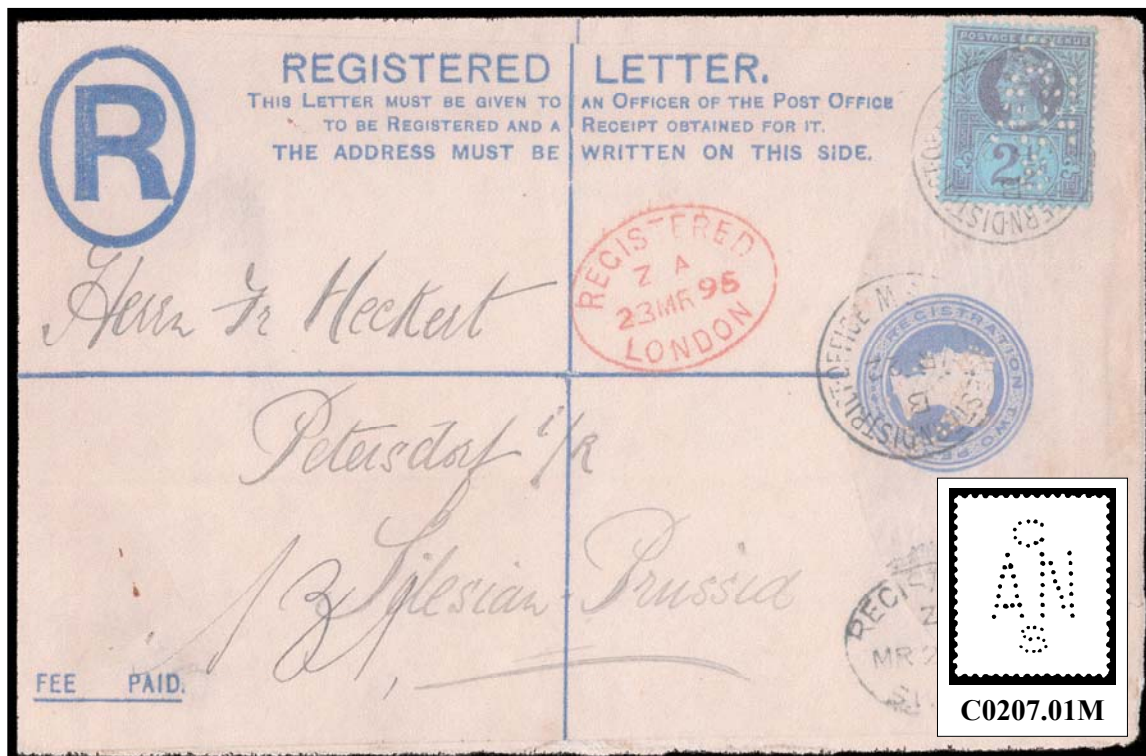 R
REGISTERED LETTER.
THIS LETTER MUST BE GIVEN TO AN OFFICER OF THE POST OFFICE
TO BE REGISTERED AND A RECEIPT OBTAINED FOR IT.
THE ADDRESS MUST BE WRITTEN ON THIS SIDE.
POSTAGE REVENUE
2
DISTRICT
REGISTERED
Z A
23 MR 95
LONDON
Herrn Fr Heckert
DISTRICT OFFICE
REGISTRATION TWO
Petersdorf i/R
Silesian - Prussia
MR
FEE PAID.
C
A N
S
C0207.01M